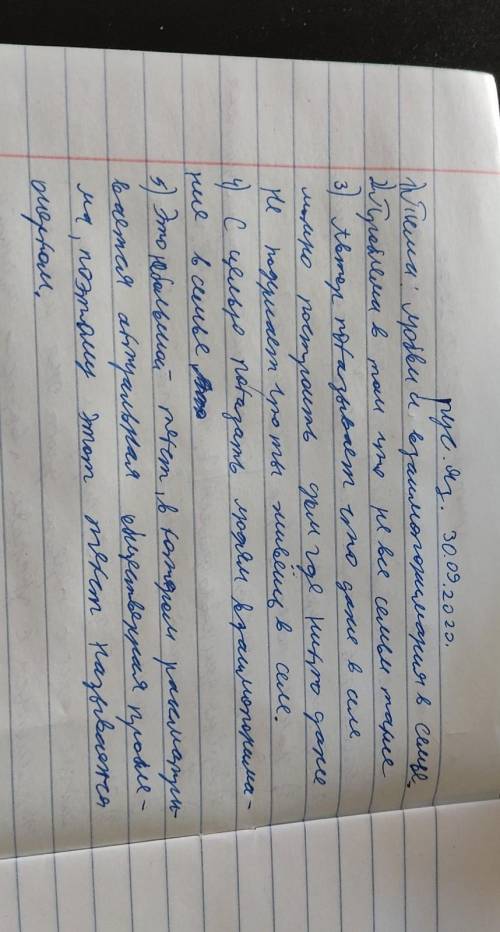 рус. яз. 30.09.2020.
1) Тема: любви и взаимопонимания в семье.
2) Проблема в том что не все семьи такие
3) Автор показывает что даже в селе
можно построить дом где никто даже
не подумает что ты живёшь в селе.
4) С целью показать людям взаимопонима-
ние в семье
5) Это небольшой текст, в котором рассматри-
вается актуальная общественная пробле-
ма, поэтому этот текст называется
очерком.